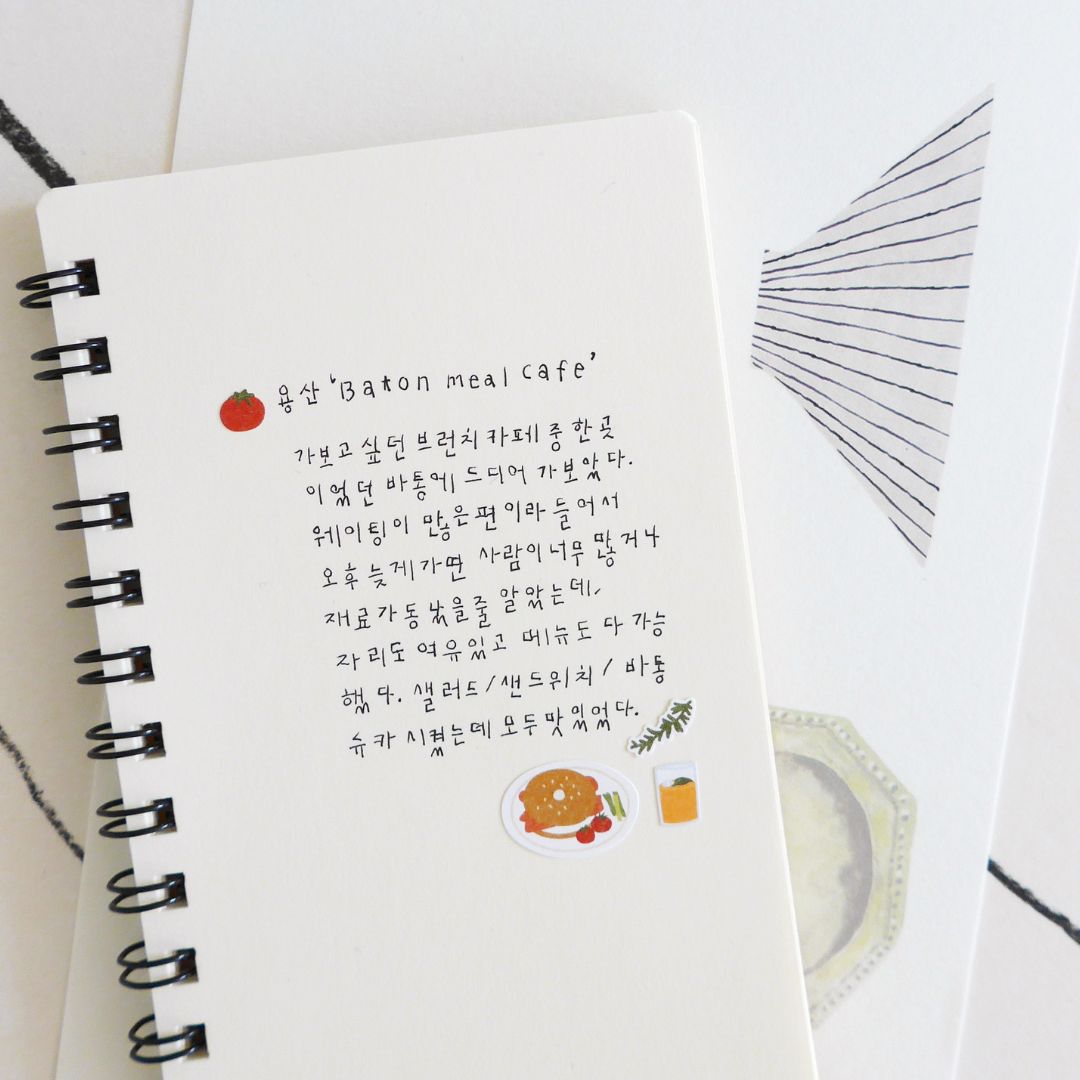 용산 'Baton meal cafe'
가보고 싶던 브런치 카페 중 한 곳
이었던 바통에 드디어 가보았다.
웨이팅이 많은 편이라 들어서
오후 늦게 가면 사람이 너무 많거나
재료가 동났을줄 알았는데,
자리도 여유있고 메뉴도 다 가능
했다. 샐러드/샌드위치/바통
슈카 시켰는데 모두 맛있었다.